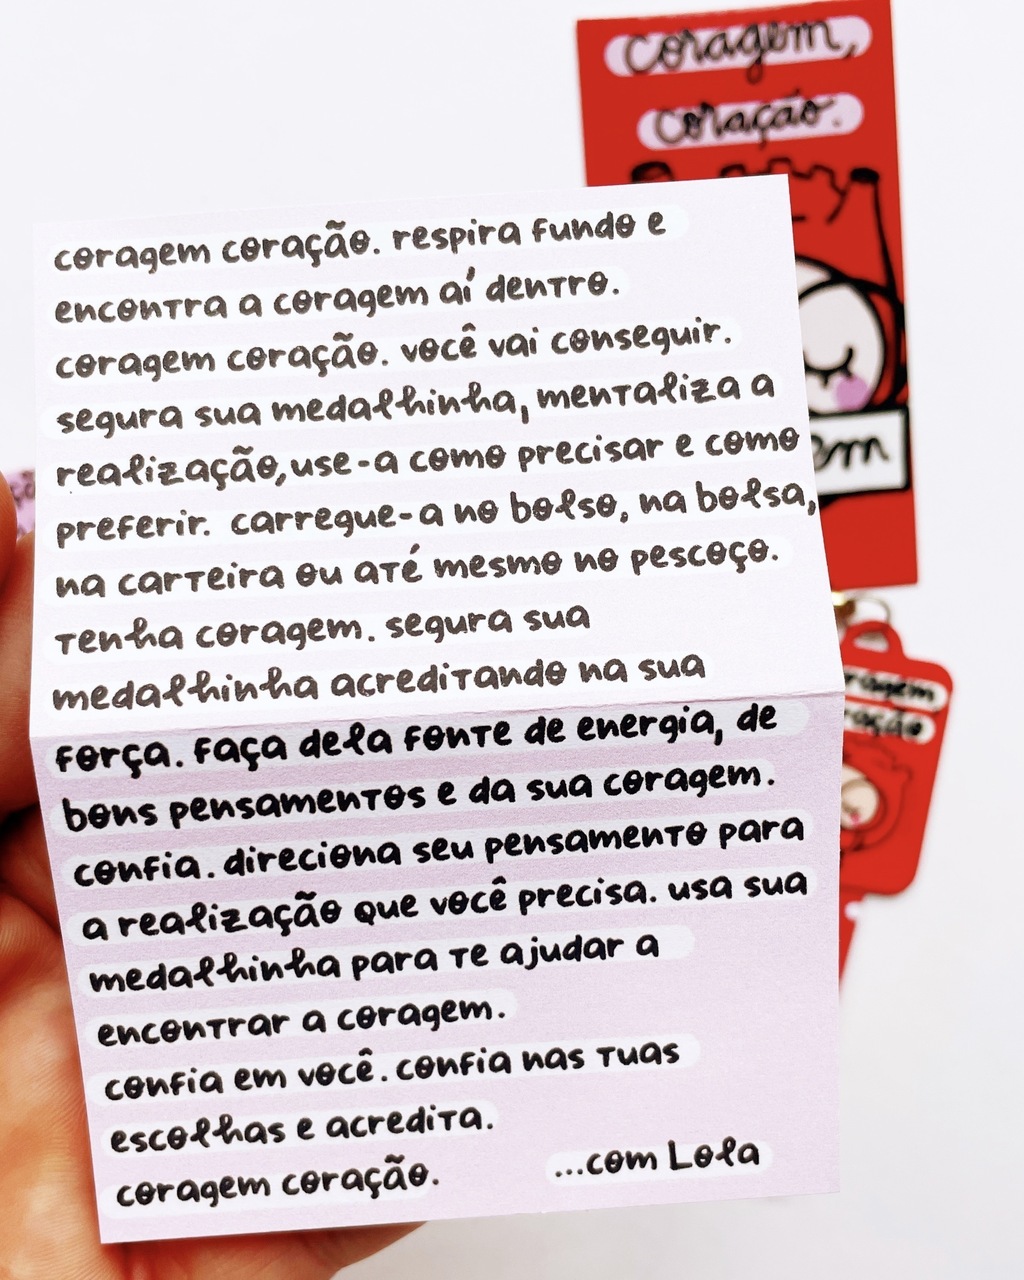 coragem,
coração.
coragem coração. respira fundo e
encontra a coragem aí dentro.
coragem coração. você vai conseguir.
segura sua medalhinha, mentaliza a
realização,use-a como precisar e como
preferir. carregue-a no bolso, na bolsa,
na carteira ou até mesmo no pescoço.
tenha coragem. segura sua
medalhinha acreditando na sua
força. faça dela fonte de energia, de
bons pensamentos e da sua coragem.
confia. direciona seu pensamento para
a realização que você precisa. usa sua
medalhinha para te ajudar a
encontrar a coragem.
confia em você. confia nas tuas
escolhas e acredita.
coragem coração.
...com Lola